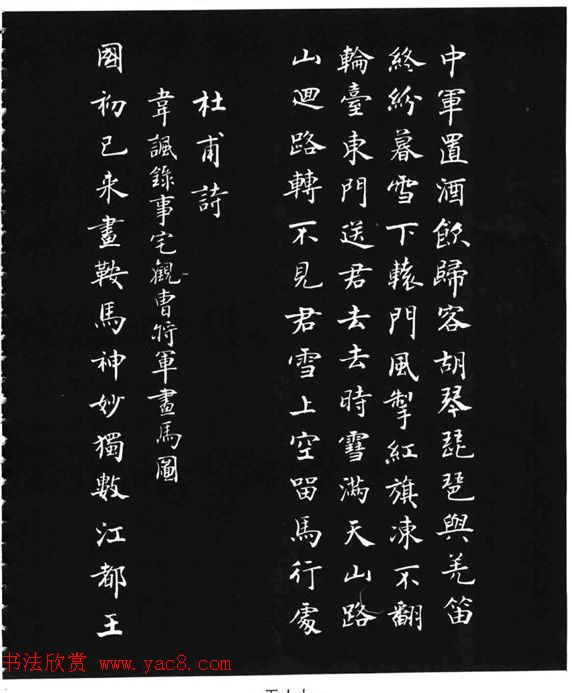 中軍置酒飲歸客胡琴琵琶與羌笛
終紛暮雪下轅門風掣紅旗凍不翻
輪臺東門送君去去時雪滿天山路
山迴路轉不見君雪上空留馬行處
杜甫詩
韋諷錄事宅觀曹將軍畫馬圖
國初已来畫鞍馬神妙獨數江都王
书法欣赏 www.yac8.com